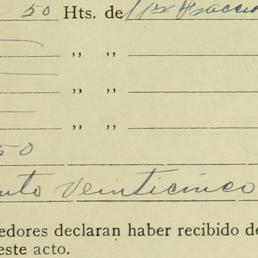 50 Hts. de
,, ,,
,, ,,
,, ,,
50
veinticinco
edores declaran haber recibido de
este acto.